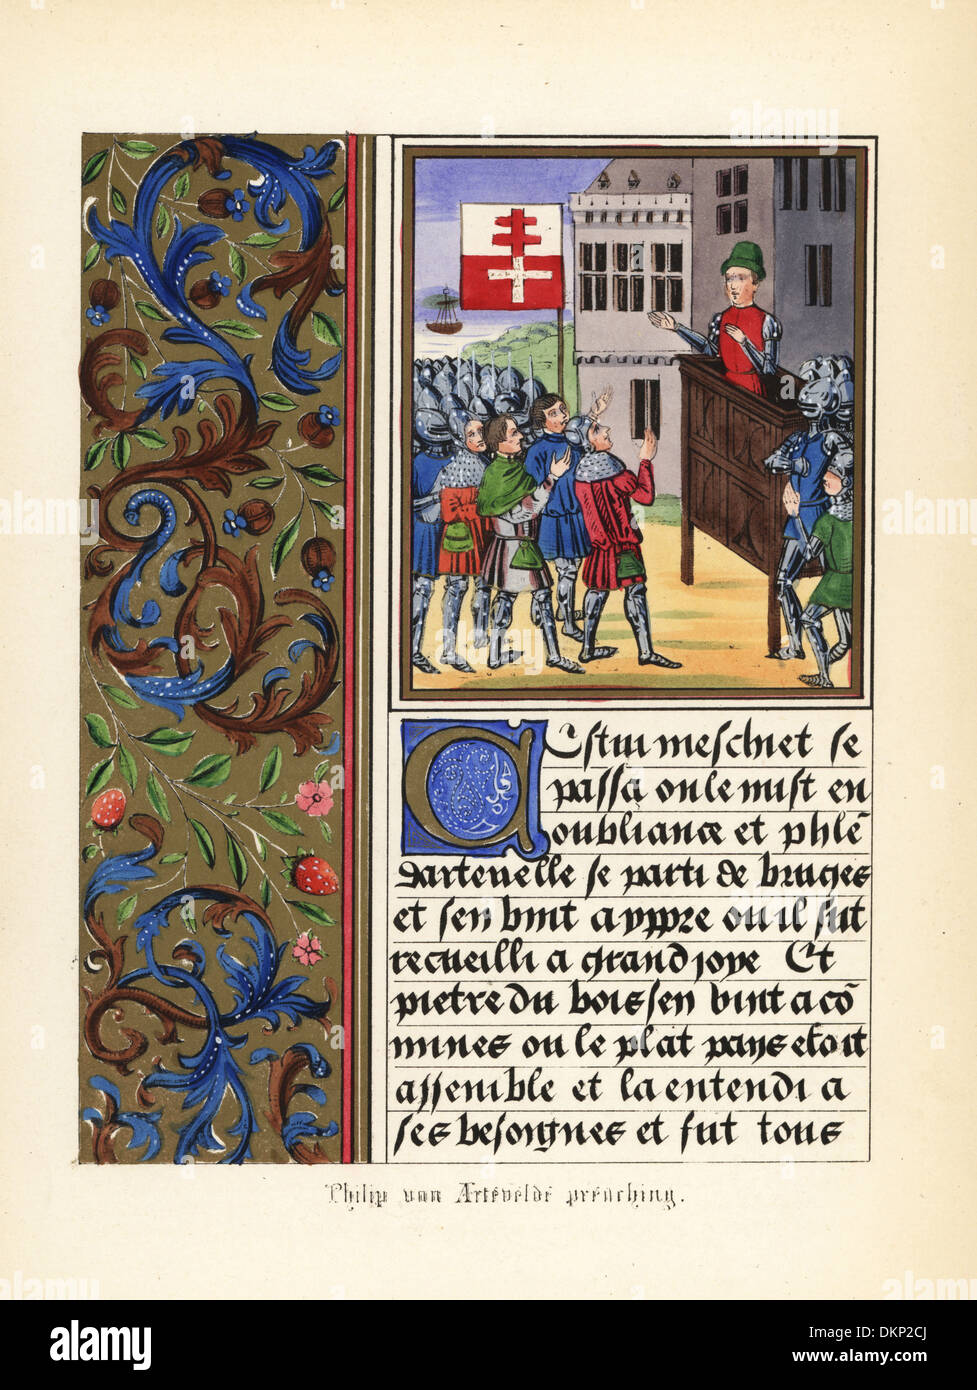 Cestui meschiet se
passa on le mist en
oubliance et phlẽ
dartevelle se parti de bruges
et sen vint a yppre ou il fut
recueilli a grand joye Et
pietre du bois sen vint a cõ
mines ou le plat pays estoit
assemble et la entendi a
ses besoignes et fut tous
Philip van Artevelde preaching.
alamy
alamy
Image ID: DKP2CJ
www.alamy.com